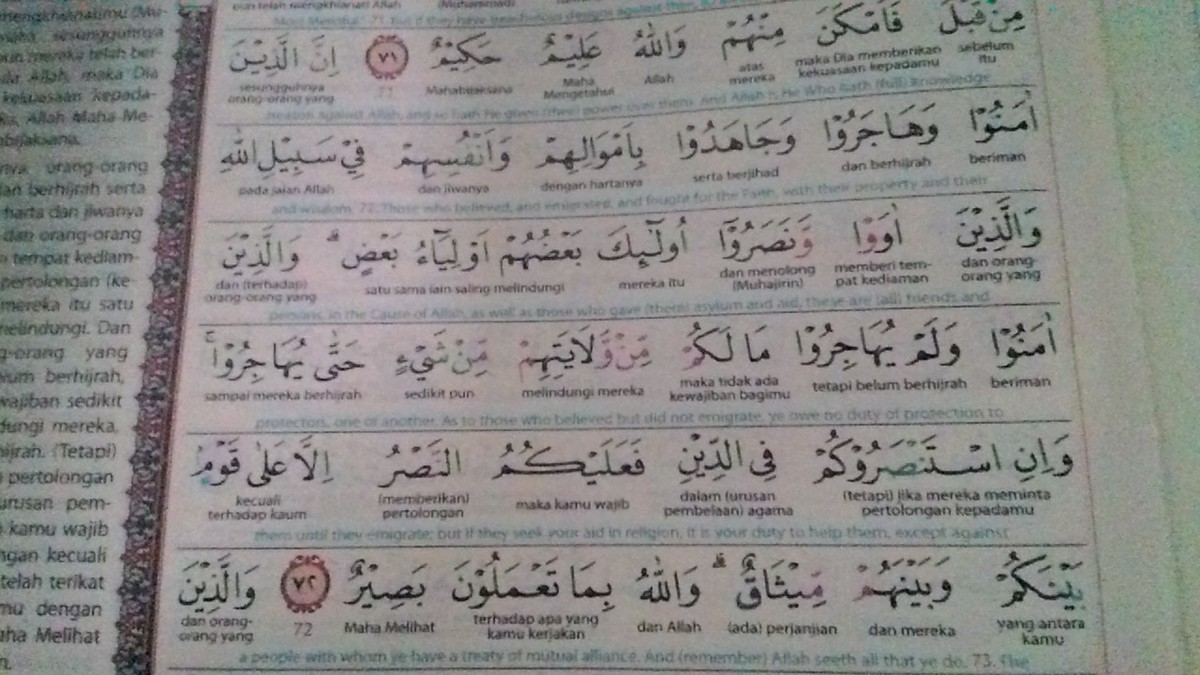 mengkhianatimu (Mu-
maka sesungguhnya
pun mereka telah ber-
Allah, maka Dia
kekuasaan kepada-
Allah Maha Me-
abijaksana.
orang-orang
dan berhijrah serta
harta dan jiwanya
dan orang-orang
tempat kediam-
pertolongan (ke-
mereka itu satu
melindungi. Dan
g-orang yang
lum berhijrah,
wajiban sedikit
dungi mereka,
hijrah. (Tetapi)
pertolongan
urusan pem-
kamu wajib
ngan kecuali
telah terikat
mu dengan
aha Melihat
n.
pun telah mengkhianati Allah (Muhammad)
Most Merciful." 71. But if they have treacherous designs against thee,
مِنْ قَبْلُ فَاَمْكَنَ مِنْهُمْ وَاللّٰهُ عَلِيْمٌ حَكِيْمٌ ٧١ اِنَّ الَّذِيْنَ
sebelum itu maka Dia memberikan kekuasaan kepadamu atas mereka Allah Maha Mengetahui Mahabijaksana 71 sesungguhnya orang-orang yang
treason against Allah, and so hath He given (thee) power over them. And Allah is He Who hath (full) knowledge
اٰمَنُوْا وَهَاجَرُوْا وَجَاهَدُوْا بِاَمْوَالِهِمْ وَاَنْفُسِهِمْ فِيْ سَبِيْلِ اللّٰهِ
beriman dan berhijrah serta berjihad dengan hartanya dan jiwanya pada jalan Allah
and wisdom. 72. Those who believed, and emigrated, and fought for the Faith, with their property and their
وَالَّذِيْنَ اٰوَوْا وَّنَصَرُوْٓا اُولٰۤىِٕكَ بَعْضُهُمْ اَوْلِيَاۤءُ بَعْضٍۗ وَالَّذِيْنَ
dan orang-orang yang memberi tem-pat kediaman dan menolong (Muhajirin) mereka itu satu sama lain saling melindungi dan (terhadap) orang-orang yang
persons, in the Cause of Allah, as well as those who gave (them) asylum and aid, these are (all) friends and
اٰمَنُوْا وَلَمْ يُهَاجِرُوْا مَا لَكُمْ مِّنْ وَّلَايَتِهِمْ مِّنْ شَيْءٍ حَتّٰى يُهَاجِرُوْاۚ
beriman tetapi belum berhijrah maka tidak ada kewajiban bagimu melindungi mereka sedikit pun sampai mereka berhijrah
protectors, one of another. As to those who believed but did not emigrate, ye owe no duty of protection to
وَاِنِ اسْتَنْصَرُوْكُمْ فِى الدِّيْنِ فَعَلَيْكُمُ النَّصْرُ اِلَّا عَلٰى قَوْمٍۢ
(tetapi) jika mereka meminta pertolongan kepadamu dalam (urusan pembelaan) agama maka kamu wajib (memberikan) pertolongan kecuali terhadap kaum
them until they emigrate; but if they seek your aid in religion, it is your duty to help them, except against
بَيْنَكُمْ وَبَيْنَهُمْ مِّيْثَاقٌۗ وَاللّٰهُ بِمَا تَعْمَلُوْنَ بَصِيْرٌ ٧٢ وَالَّذِيْنَ
yang antara kamu dan mereka (ada) perjanjian dan Allah terhadap apa yang kamu kerjakan Maha Melihat 72 dan orang-orang yang
a people with whom ye have a treaty of mutual alliance. And (remember) Allah seeth all that ye do. 73. The